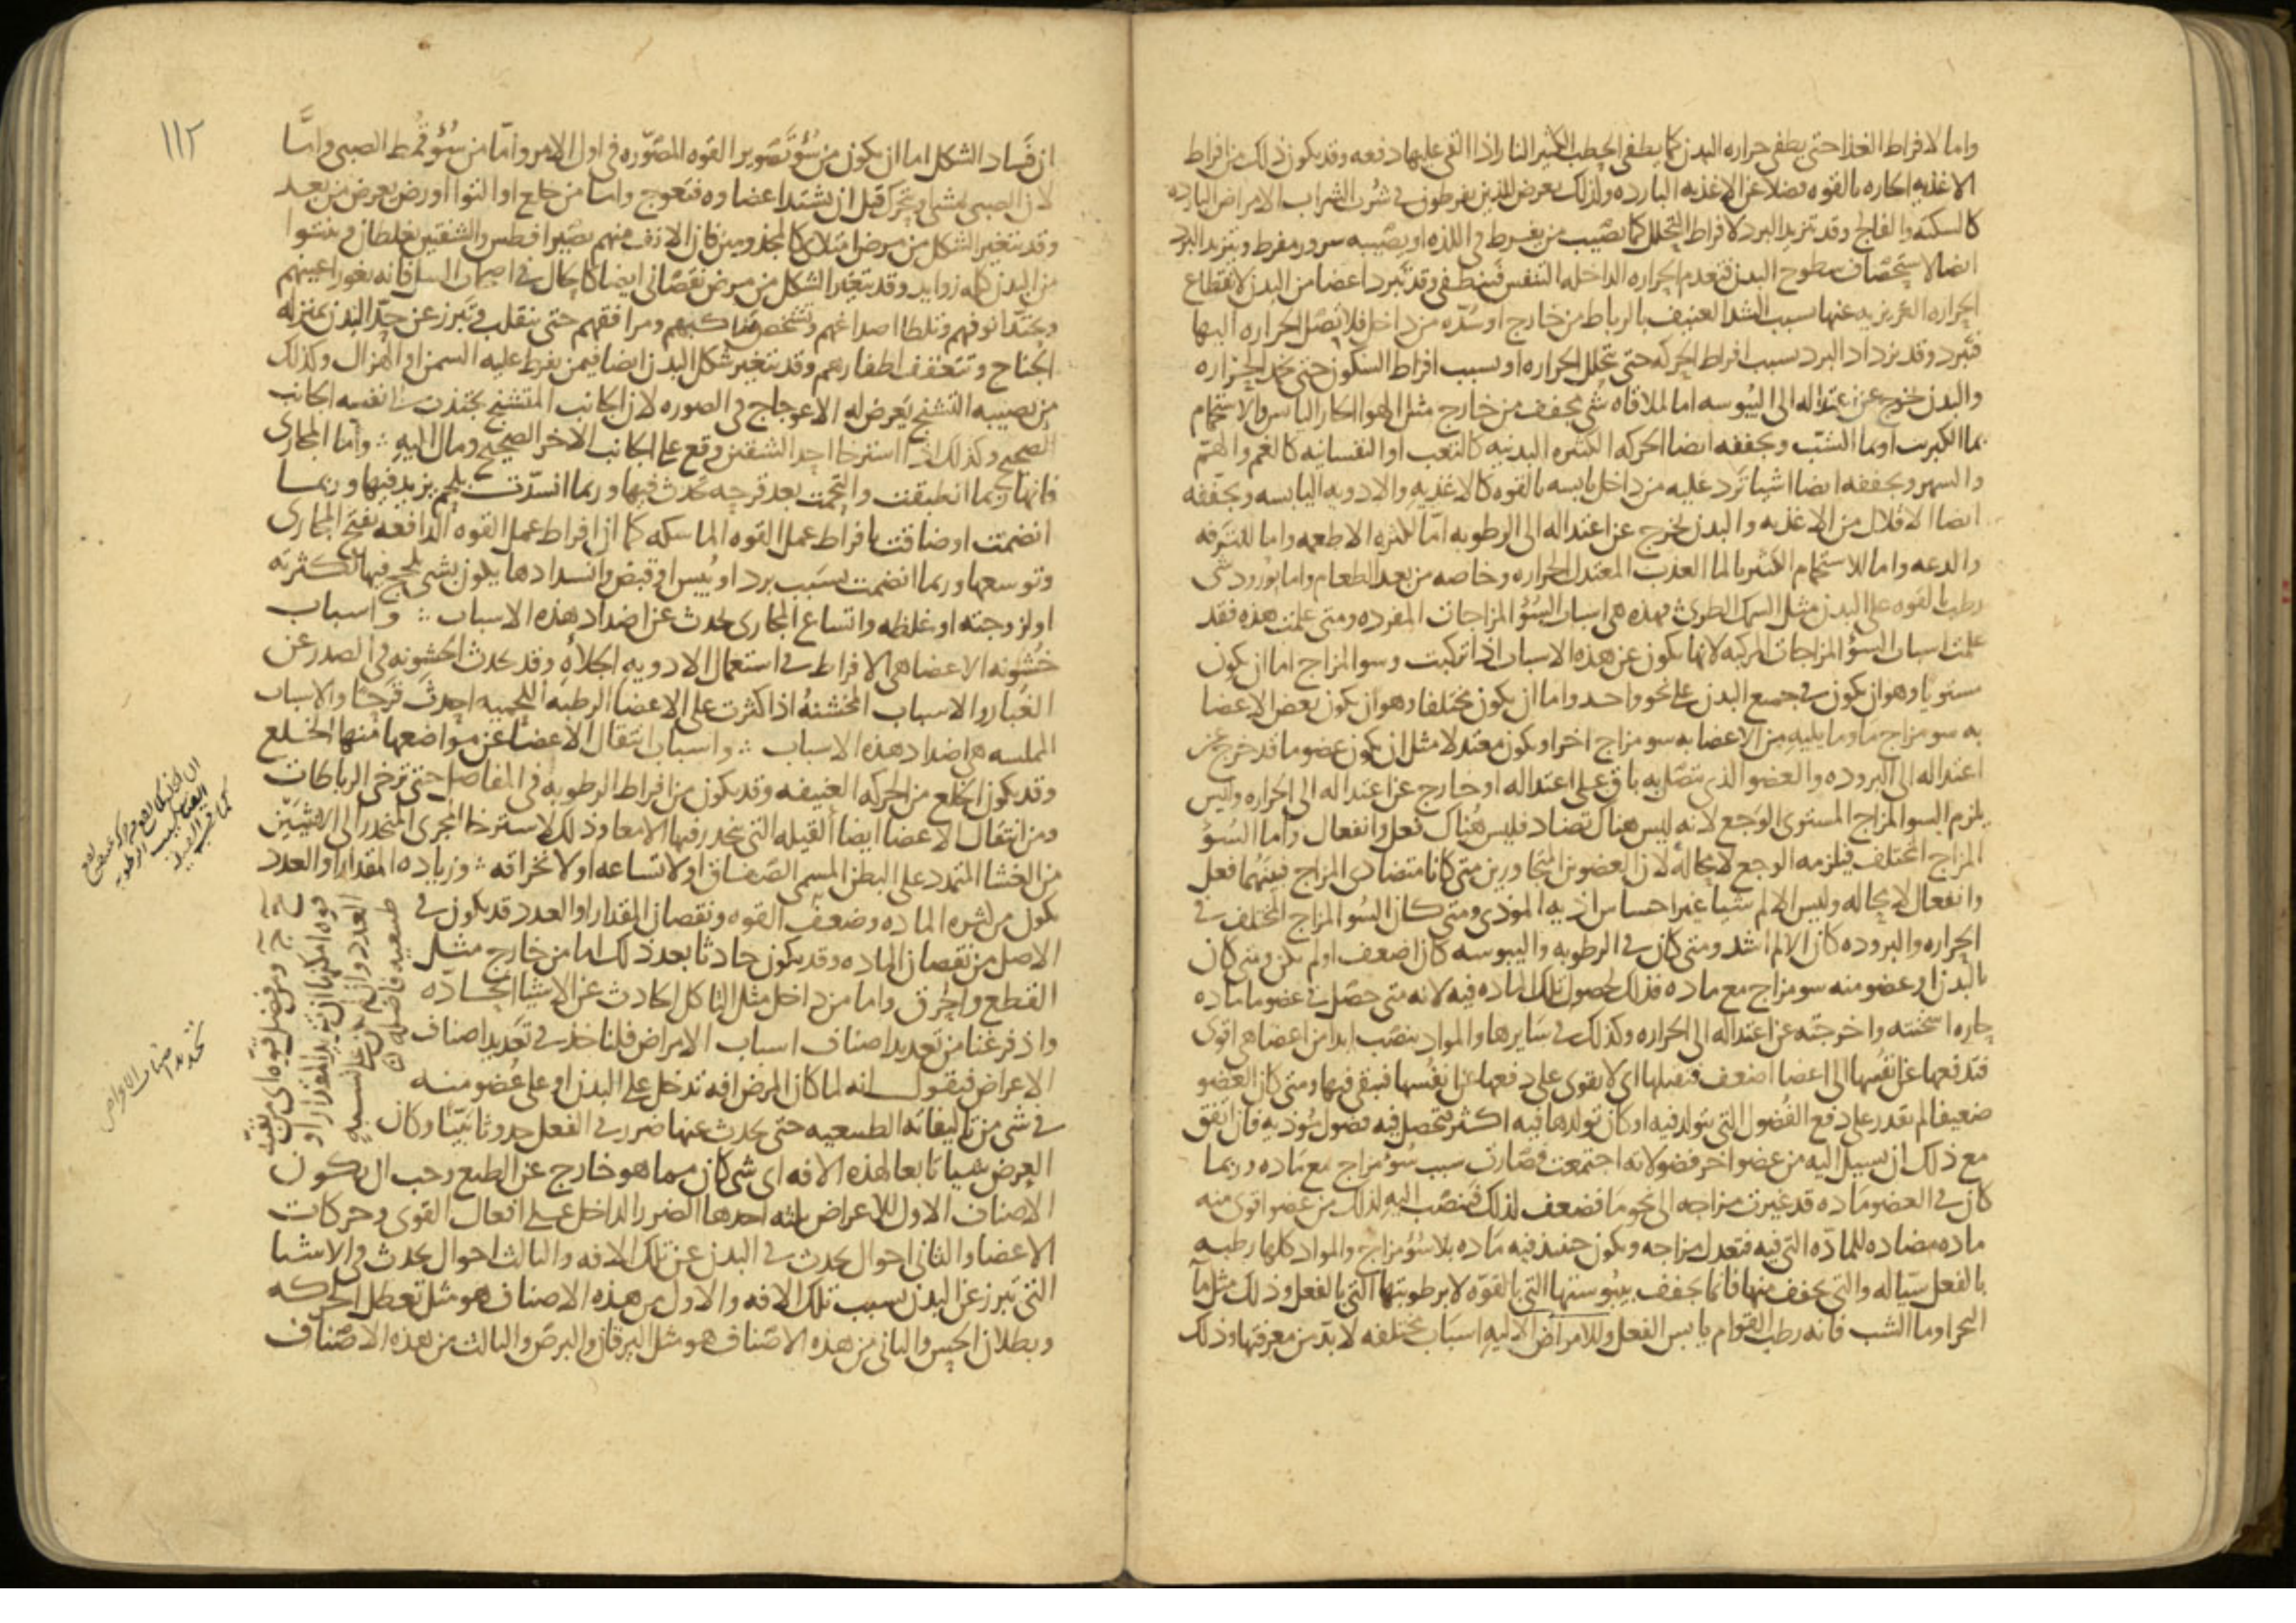 واما لافراط الغذا حتى يطفى حراره البدن كما يطفى الحطب الكثير النار اذا القى عليها دفعه وقد يكون ذلك من افراط
الاغذيه الحاره بالقوه فضلا عن الاغذيه البارده ولذلك يعرض للذين يفرطون فى شرب الشراب الامراض البارده
كالسكته والفالج وقد يتزيد البرد لافراط التحلل كما يصيب من يفرط فى اللذه او يصيبه سرور مفرط ويتزيد البرد
ايضا لاستحصاف سطوح البدن فتعدم الحراره الداخله التنفس فتنطفى وقد تبرد اعضا من البدن لانقطاع
الحراره الغريزيه عنها بسبب الشد العنيف بالرباط من خارج او سده من داخل فلا تصل الحراره اليها
فتبرد وقد يزداد البرد بسبب افراط الحركه حتى تتحلل الحراره او بسبب افراط السكون حتى تخمد الحراره
والبدن يخرج عن اعتداله الى اليبوسه اما لملاقاه شى يجفف من خارج مثل الهوا الحار اليابس والاستحمام
بما الكبريت او بما الشب ويجففه ايضا الحركه الكثيره البدنيه كالتعب او النفسانيه كالغم والهم
والسهر ويجففه ايضا اشيا ترد عليه من داخل يابسه بالقوه كالاغذيه والادويه اليابسه ويجففه
ايضا الاقلال من الاغذيه والبدن يخرج عن اعتداله الى الرطوبه اما لكثره الاطعمه واما للترفه
والدعه واما للاستحمام الكثير بالما العذب المعتدل الحراره وخاصه من بعد الطعام واما بورود شى
رطب بالقوه على البدن مثل السمك الطرى فهذه هى اسباب السؤ المزاجات المفرده ومتى علمت هذه فقد
علمت اسباب السؤ المزاجات المركبه لانها تكون عن هذه الاسباب اذا تركبت وسو المزاج اما ان يكون
مستويا وهو ان يكون فى جميع البدن على نحو واحد واما ان يكون مختلفا وهو ان يكون بعض الاعضا
به سو مزاج ما وما يليه من الاعضا به سو مزاج اخر او يكون معتدلا مثل ان يكون عضو ما قد خرج عن
اعتداله الى البروده والعضو الذى متصل به باق على اعتداله او خارج عن اعتداله الى الحراره وليس
يلزم السو المزاج المستوى الوجع لانه ليس هناك تضاد فليس هناك فعل وانفعال واما السؤ
المزاج المختلف فيلزمه الوجع لا محاله لان العضوين المتجاورين متى كانا متضادى المزاج فبينهما فعل
وانفعال لا محاله وليس الالم شيا غير احساس اذيه الموذى ومتى كان السو المزاج المختلف فى
الحراره والبروده كان الالم اشد ومتى كان فى الرطوبه واليبوسه كان اضعف او لم يكن ومتى كان
بالبدن او عضو منه سو مزاج مع ماده فذلك لحصول تلك الماده فيه لانه متى حصل فى عضو ما ماده
حاره اسخنته واخرجته عن اعتداله الى الحراره وكذلك فى سايرها والمواد تنصب ابدا من اعضا هى اقوى
فتدفعها عن نفسها الى اعضا اضعف فتقبلها اى لا تقوى على دفعها عن نفسها فتبقى فيها ومتى كان العضو
ضعيفا لم يقدر على دفع الفضول التى تتولد فيه او كان تولدها فيه اكثر فتحصل فيه فضول تؤذيه فان اتفق
مع ذلك ان تسيل اليه من عضو اخر فضول لانه اجتمعت فصارت سبب سؤ مزاج مع ماده وربما
كان فى العضو ماده قد غيرت مزاجه الى نحو ما فضعف لذلك فتنصب اليه لذلك من عضو اقوى منه
ماده مضاده للماده التى فيه فتعدل مزاجه ويكون حينئذ فيه ماده بلا سؤ مزاج والمواد كلها رطبه
بالفعل سياله والتى تجفف منها فانما تجفف بيبوستها التى بالقوه لا برطوبتها التى بالفعل وذلك مثل ما
البحر او ما الشب فانه رطب القوام يابس الفعل وللامراض الاليه اسباب مختلفه لا بد من معرفتها وذلك
١١٢
ان فساد الشكل اما ان يكون من سؤ تصوير القوه المصوره فى اول الامر واما من سؤ قمط الصبى واما
لان الصبى يمشى او تحرك قبل ان تشتد اعضاوه فتعوج واما من خلع او التوا او رض يعرض من بعد
وقد يتغير الشكل من مرض امتلاى كالمجذومين فان الانف منهم يصير افطس والشفتين يغلظان وينتوا
من البدن كله زوايد وقد يتغير الشكل من مرض نقصانى ايضا كالحال فى اصحاب السل فانه يغور اعينهم
ويحتد انوفهم وتلطا اصداغهم وتشخص مناكبهم ومرافقهم حتى ينقلب وتبرز عن حد البدن بمنزله
الجناح وتتعقف اظفارهم وقد يتغير شكل البدن ايضا فيمن يفرط عليه السمن او الهزال وكذلك
من يصيبه التشنج يعرض له الاعوجاج فى الصوره لان الجانب المتشنج يجتذب الى نفسه الجانب
الصحيح وكذلك اذا استرخا احد الشقين وقع على الجانب الاخر الصحيح ومال اليه ∴ واما المجارى
فانها ربما انطبقت والتحمت بعد قرحه تحدث فيها وربما انسدت بلحم يزيد فيها وربما
انضمت او ضاقت بافراط عمل القوه الماسكه كما ان افراط عمل القوه الدافعه يفتح المجارى
وتوسعها وربما انضمت بسبب برد او يبس او قبض وانسدادها يكون بشى يلحج فيها لكثرته
او لزوجته او غلظه واتساع المجارى يحدث عن اضداد هذه الاسباب ∴ واسباب
خشونه الاعضا هى الافراط فى استعمال الادويه الجلاه وقد يحدث الخشونه فى الصدر عن
الغبار والاسباب المخشنه اذا كثرت على الاعضا الرطبه اللحميه احدثت قرحا والاسباب
المملسه هى اضداد هذه الاسباب ∴ واسباب انتقال الاعضا عن مواضعها منها الخلع
وقد يكون الخلع من الحركه العنيفه وقد يكون من افراط الرطوبه فى المفاصل حتى ترخى الرباطات
ومن انتقال الاعضا ايضا القيله التى ينحدر فيها الامعا وذلك لاسترخا المجرى المنحدر الى الانثيين
من الغشا المتمدد على البطن المسمى الصفاق او لاتساعه او لانخراقه ∴ وزياده المقدار او العدد
يكون من كثره الماده وضعف القوه ونقصان المقدار او العدد قد يكون فى
الاصل من نقصان الماده وقد يكون حادثا بعد ذلك اما من خارج مثل
القطع والحرق واما من داخل مثل التاكل الحادث عن الاشيا الحاده
واذ فرغنا من تعديد اصناف اسباب الامراض فلناخذ فى تعديد اصناف
الاعراض فيقول انه لما كان المرض افه تدخل على البدن او على عضو منه
فى شى من تاليفاته الطبيعيه حتى يحدث عنها ضرر فى الفعل حدوثا بينا وكان
العرض شيا تابعا لهذه الافه اى شى كان مما هو خارج عن الطبع وجب ان يكون
الاصناف الاول للاعراض ثلثه احدها الضرر الداخل على افعال القوى وحركات
الاعضا والثانى احوال يحدث فى البدن عن تلك الافه والثالث احوال يحدث فى الاشيا
التى تبرز عن البدن بسبب تلك الافه والاول من هذه الاصناف هو مثل تعطل الحركه
وبطلان الحس والثانى من هذه الاصناف هو مثل اليرقان والبرص والثالث من هذه الاصناف
ومن فضل قوه اى من
قوه امكنها ان تزيد المقدار او
العدد وان لم يكن على نسبه
طبيعيه فاضله
كما فى القيله
تحديد اصناف الامراض